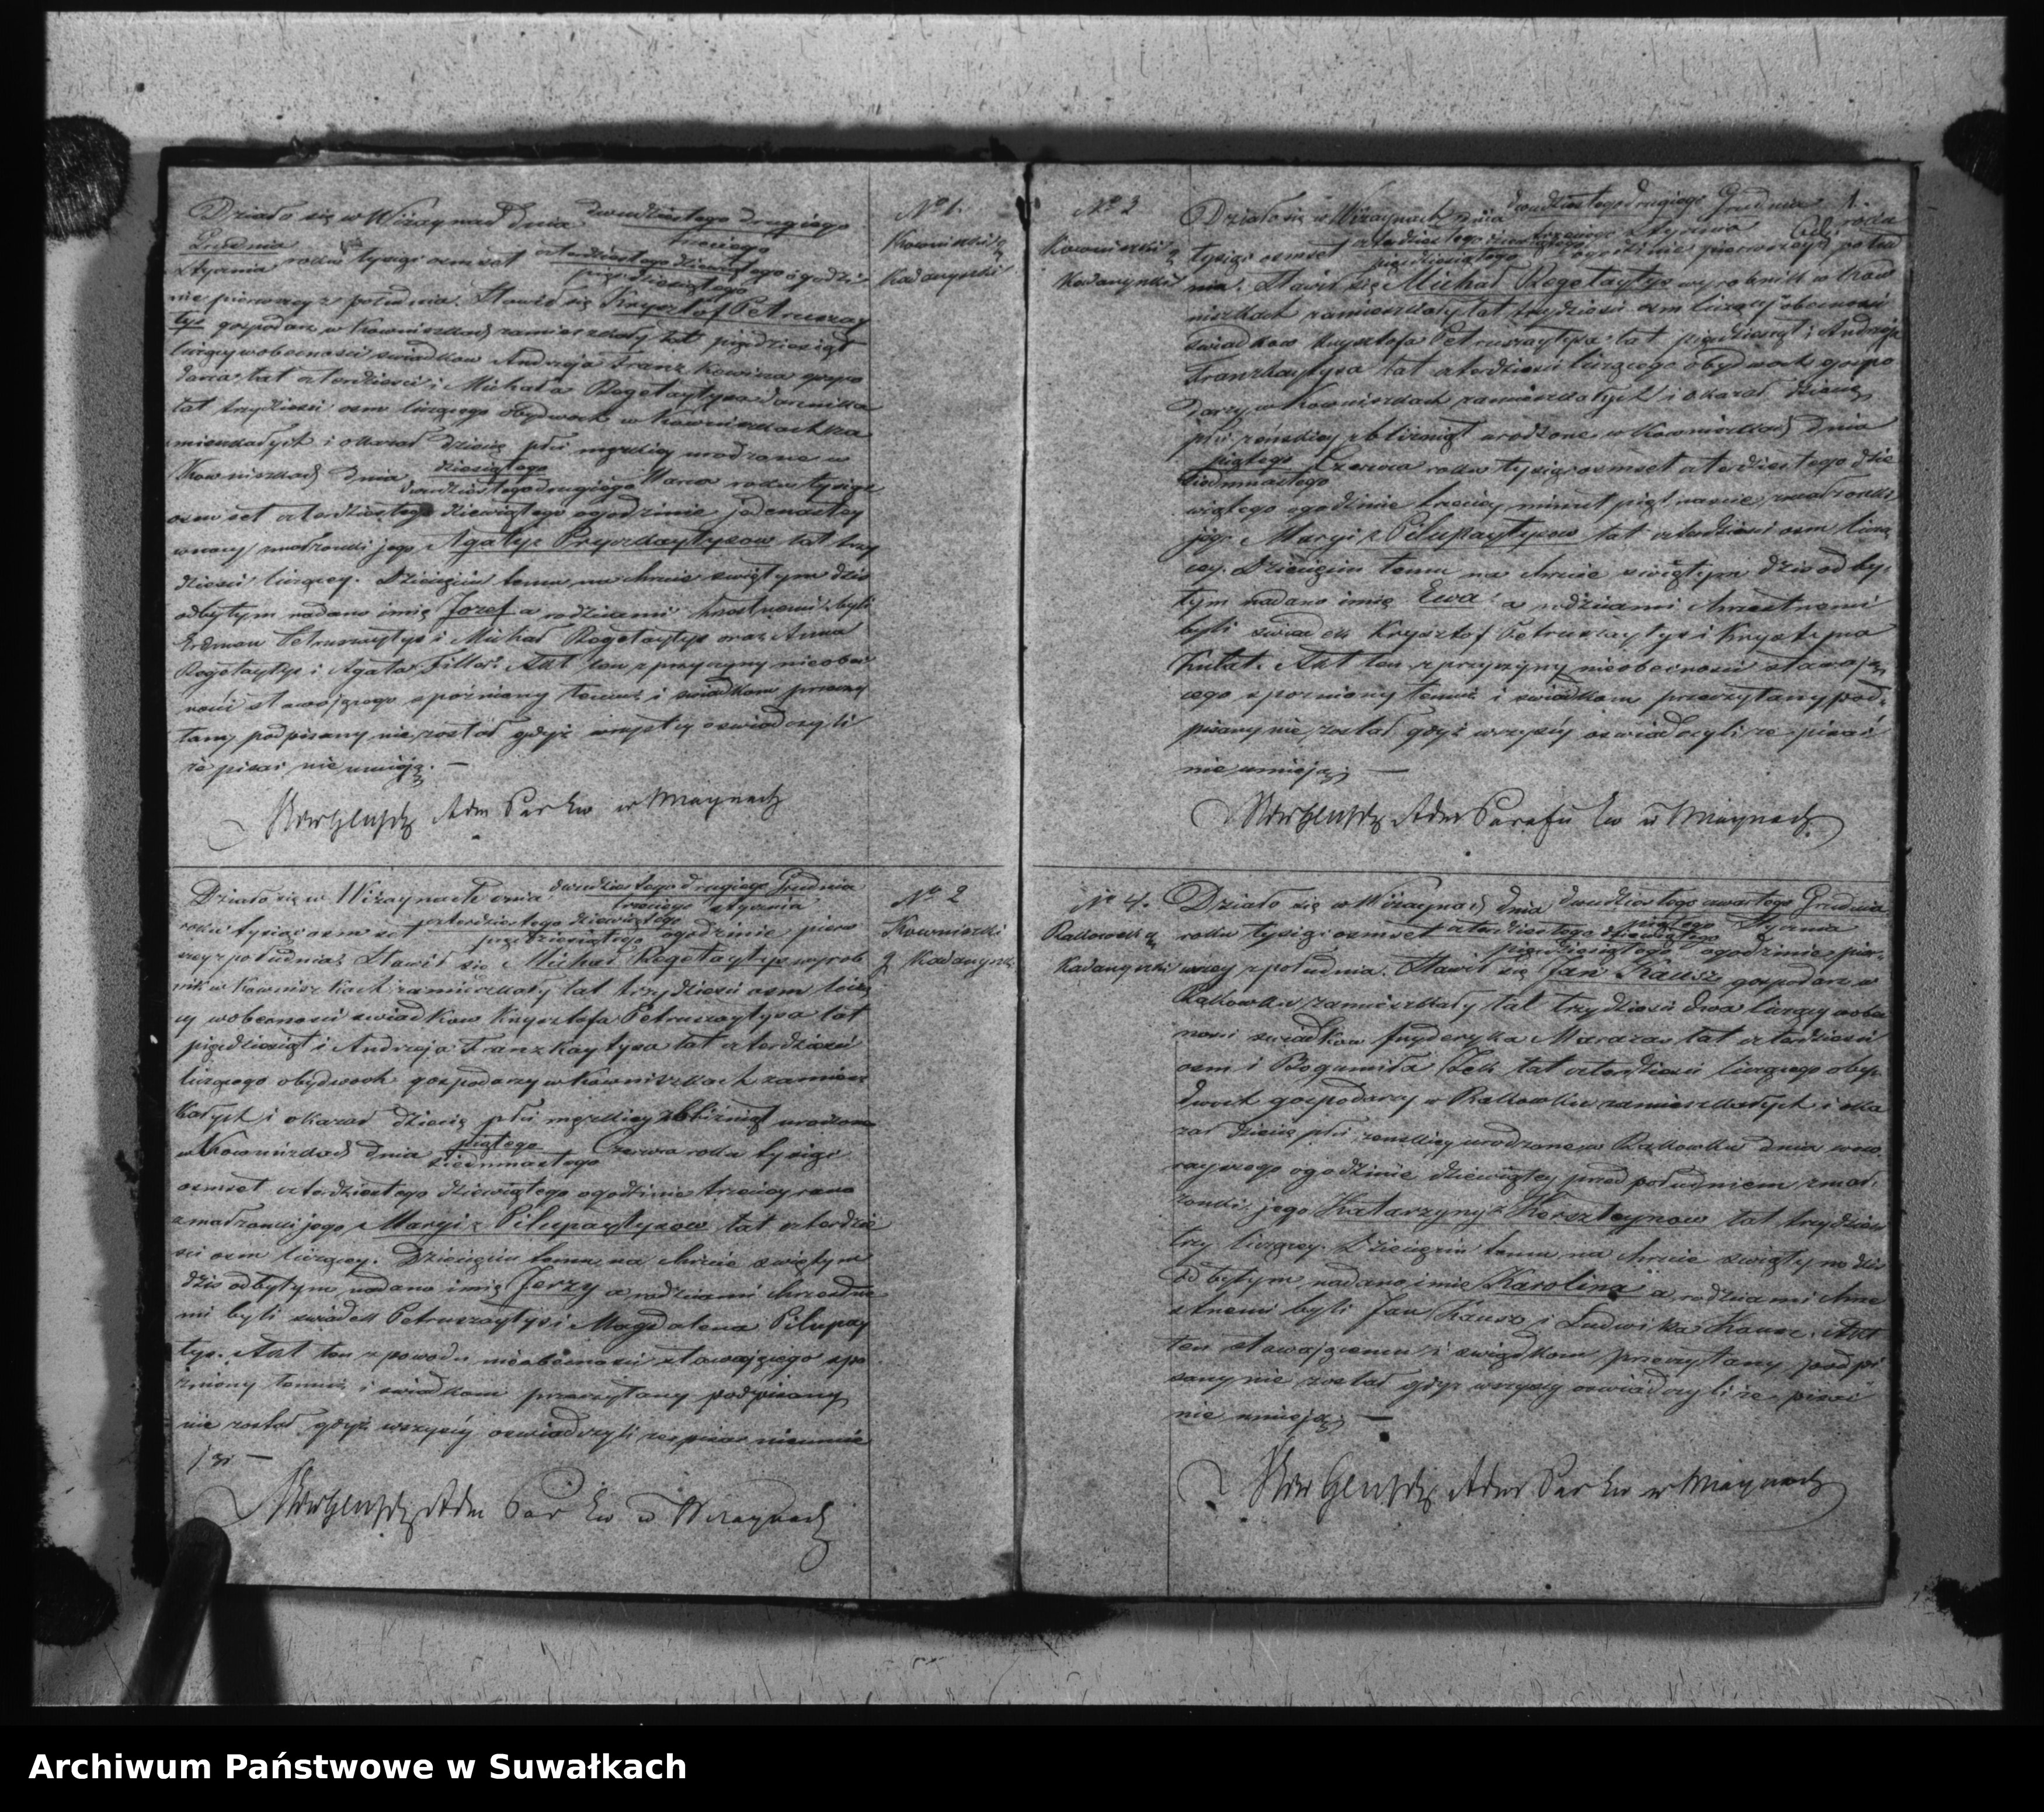 No 1.
Kowniszki
Kadaryszki
Działo się w Wiżaynach dnia dwudziestego drugiego
Grudnia trzeciego
Stycznia roku tysiąc ośmset czterdziestego dziewiątego ogodzi
pięćdziesiątego
nie pierwszey z południa. Stawił się Krysztof Petruszay
tys gospodarz w Kowniszkach zamieszkały lat pięćdziesiąt
liczący wobecności świadków Andrzeja Franz gospo
darza lat czterdzieści i Michała Rogetaytysa
lat trzydzieści osm liczącego obydwóch w Kowniszkach za
mieszkałych i okazał dziecię płci męzkiey urodzone w
Kowniszkach dnia dziesiątego
dwudziestego drugiego Marca roku tysiąc
ośmset czterdziestego dziewiątego ogodzinie jedenastey
wnocy z małżonki jego Agaty z Pryzkaytysow lat trzy
dzieści liczącey. Dziecięciu temu na chrzcie świętym dziś
odbytym nadano imię Jozef a rodzicami chrzestnemi byli
Erdman Petruszaytys i Michał Rogetaytys oraz Anna
Rogetaytys i Agata Akt ten z przyczyny nieobec
ności stawającego spóźniony temuż i świadkom przeczy
tany podpisany nie został gdyż wszyscy oświadczyli
że pisać nie umieją. —
Adm Par Ew w Wiżaynach
No 2
Kowniszki
Kadaryszki
Działo się w Wiżaynach dnia dwudziestego drugiego Grudnia
trzeciego Stycznia
roku tysiąc ośm set czterdziestego dziewiątego
pięćdziesiątego ogodzinie pierw
szey z południa. Stawił się Michał Rogetaytys wyrob
nik w Kowniszkach zamieszkały lat trzydzieści osm licząc
y wobecności świadków Krysztofa Petruszaytysa lat
pięćdziesiąt i Andrzeja Franzkaytysa lat czterdzieści
liczącego obydwóch gospodarzy w Kowniszkach zamiesz
kałych i okazał dziecię płci męzkiey z bliźniąt urodzone
w Kowniszkach dnia piątego
siedmnastego Czerwca roku tysiąc
ośmset czterdziestego dziewiątego ogodzinie trzeciey rano
z małżonki jego Maryi z Pilupaytysow lat czterdzie
ści osm liczącey. Dziecięciu temu na chrzcie świętym
dziś odbytym nadano imię Jerzy a rodzicami chrzestne
mi byli świadek Petruszaytys i Magdalena Pilupay
tys. Akt ten z powodu nieobecności stawającego spó
źniony temuż i świadkom przeczytany podpisany
nie został gdyż wszyscy oświadczyli że pisać nie umie
ją. —
Adm Par Ew w Wiżaynach
1.
No 2
Kowniszki
Kadaryszki
Działo się w Wiżaynach dnia dwudziestego drugiego Grudnia
trzeciego Stycznia roku
tysiąc ośmset czterdziestego dziewiątego
pięćdziesiątego ogodzinie pierwszey z połud
nia. Stawił się Michał Rogetaytys wyrobnik w Kow
niszkach zamieszkały lat trzydzieści osm liczący wobecności
świadków Krysztofa Petruszaytysa lat pięćdziesiąt i Andrzeja
Franzkaytysa lat czterdzieści liczącego obydwóch gospo
darzy w Kowniszkach zamieszkałych i okazał dziecię
płci żeńskiey z bliźniąt urodzone w Kowniszkach dnia
piątego
siedmnastego Czerwca roku tysiąc ośmset czterdziestego dzie
wiątego ogodzinie trzeciey minut piętnaście z małżonki
jego Maryi z Pilupaytysow lat czterdzieści osm liczą
cey. Dziecięciu temu na chrzcie świętym dziś odby
tym nadano imię Ewa a rodzicami chrzestnemi
byli świadek Krysztof Petruszaytys i Krystyna
Akt ten z przyczyny nieobecności stawają
cego spóźniony temuż i świadkom przeczytany pod
pisany nie został gdyż wszyscy oświadczyli że pisać
nie umieją. —
Adm Parafii Ew w Wiżaynach
No 4.
Rakowek
Kadaryszki
Działo się w Wiżaynach dnia dwudziestego czwartego Grudnia
piątego Stycznia
roku tysiąc ośmset czterdziestego dziewiątego
pięćdziesiątego ogodzinie pier
wszey z południa. Stawił się Jan Kausz gospodarz w
Rakowku zamieszkały lat trzydzieści dwa liczący wobec
ności świadków Fryderyka lat czterdzieści
osm i Bogumiła lat czterdzieści liczącego oby
dwóch gospodarzy w Rakowku zamieszkałych i oka
zał dziecię płci żeńskiey urodzone w Rakowku dnia wczo
rayszego ogodzinie dziewiątey przed południem z mał
żonki jego Katarzyny z lat trzydzieści
trzy liczącey. Dziecięciu temu na chrzcie świętym dziś
odbytym nadano imię Karolina a rodzicami chrze
stnemi byli Jan Kausz i Ludwika Kausz. Akt
ten stawającemu i świadkom przeczytany podpi
sany nie został gdyż wszyscy oświadczyli że pisać
nie umieją. —
Adm Par Ew w Wiżaynach
Archiwum Państwowe w Suwałkach